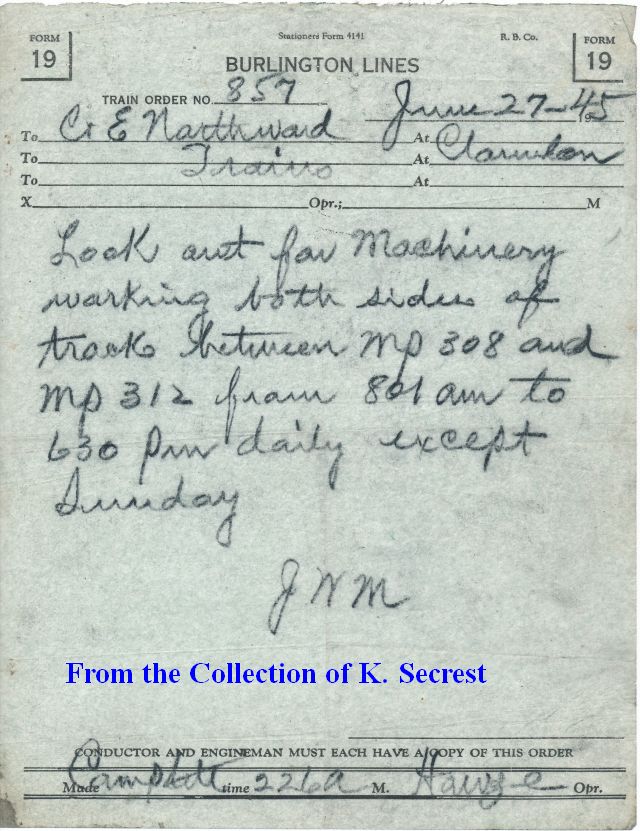 FORM 19
Stationers Form 4141
R. B. Co.
FORM 19
BURLINGTON LINES
TRAIN ORDER NO. 857
June 27-45
To C & E Northward At Clarendon
To Trains At
To At
X Opr.; M
Look out for Machinery
working both sides of
track between MP 308 and
MP 312 from 801 am to
630 Pm daily except
Sunday
J W M
From the Collection of K. Secrest
CONDUCTOR AND ENGINEMAN MUST EACH HAVE A COPY OF THIS ORDER
Made time 226 A M. Opr.